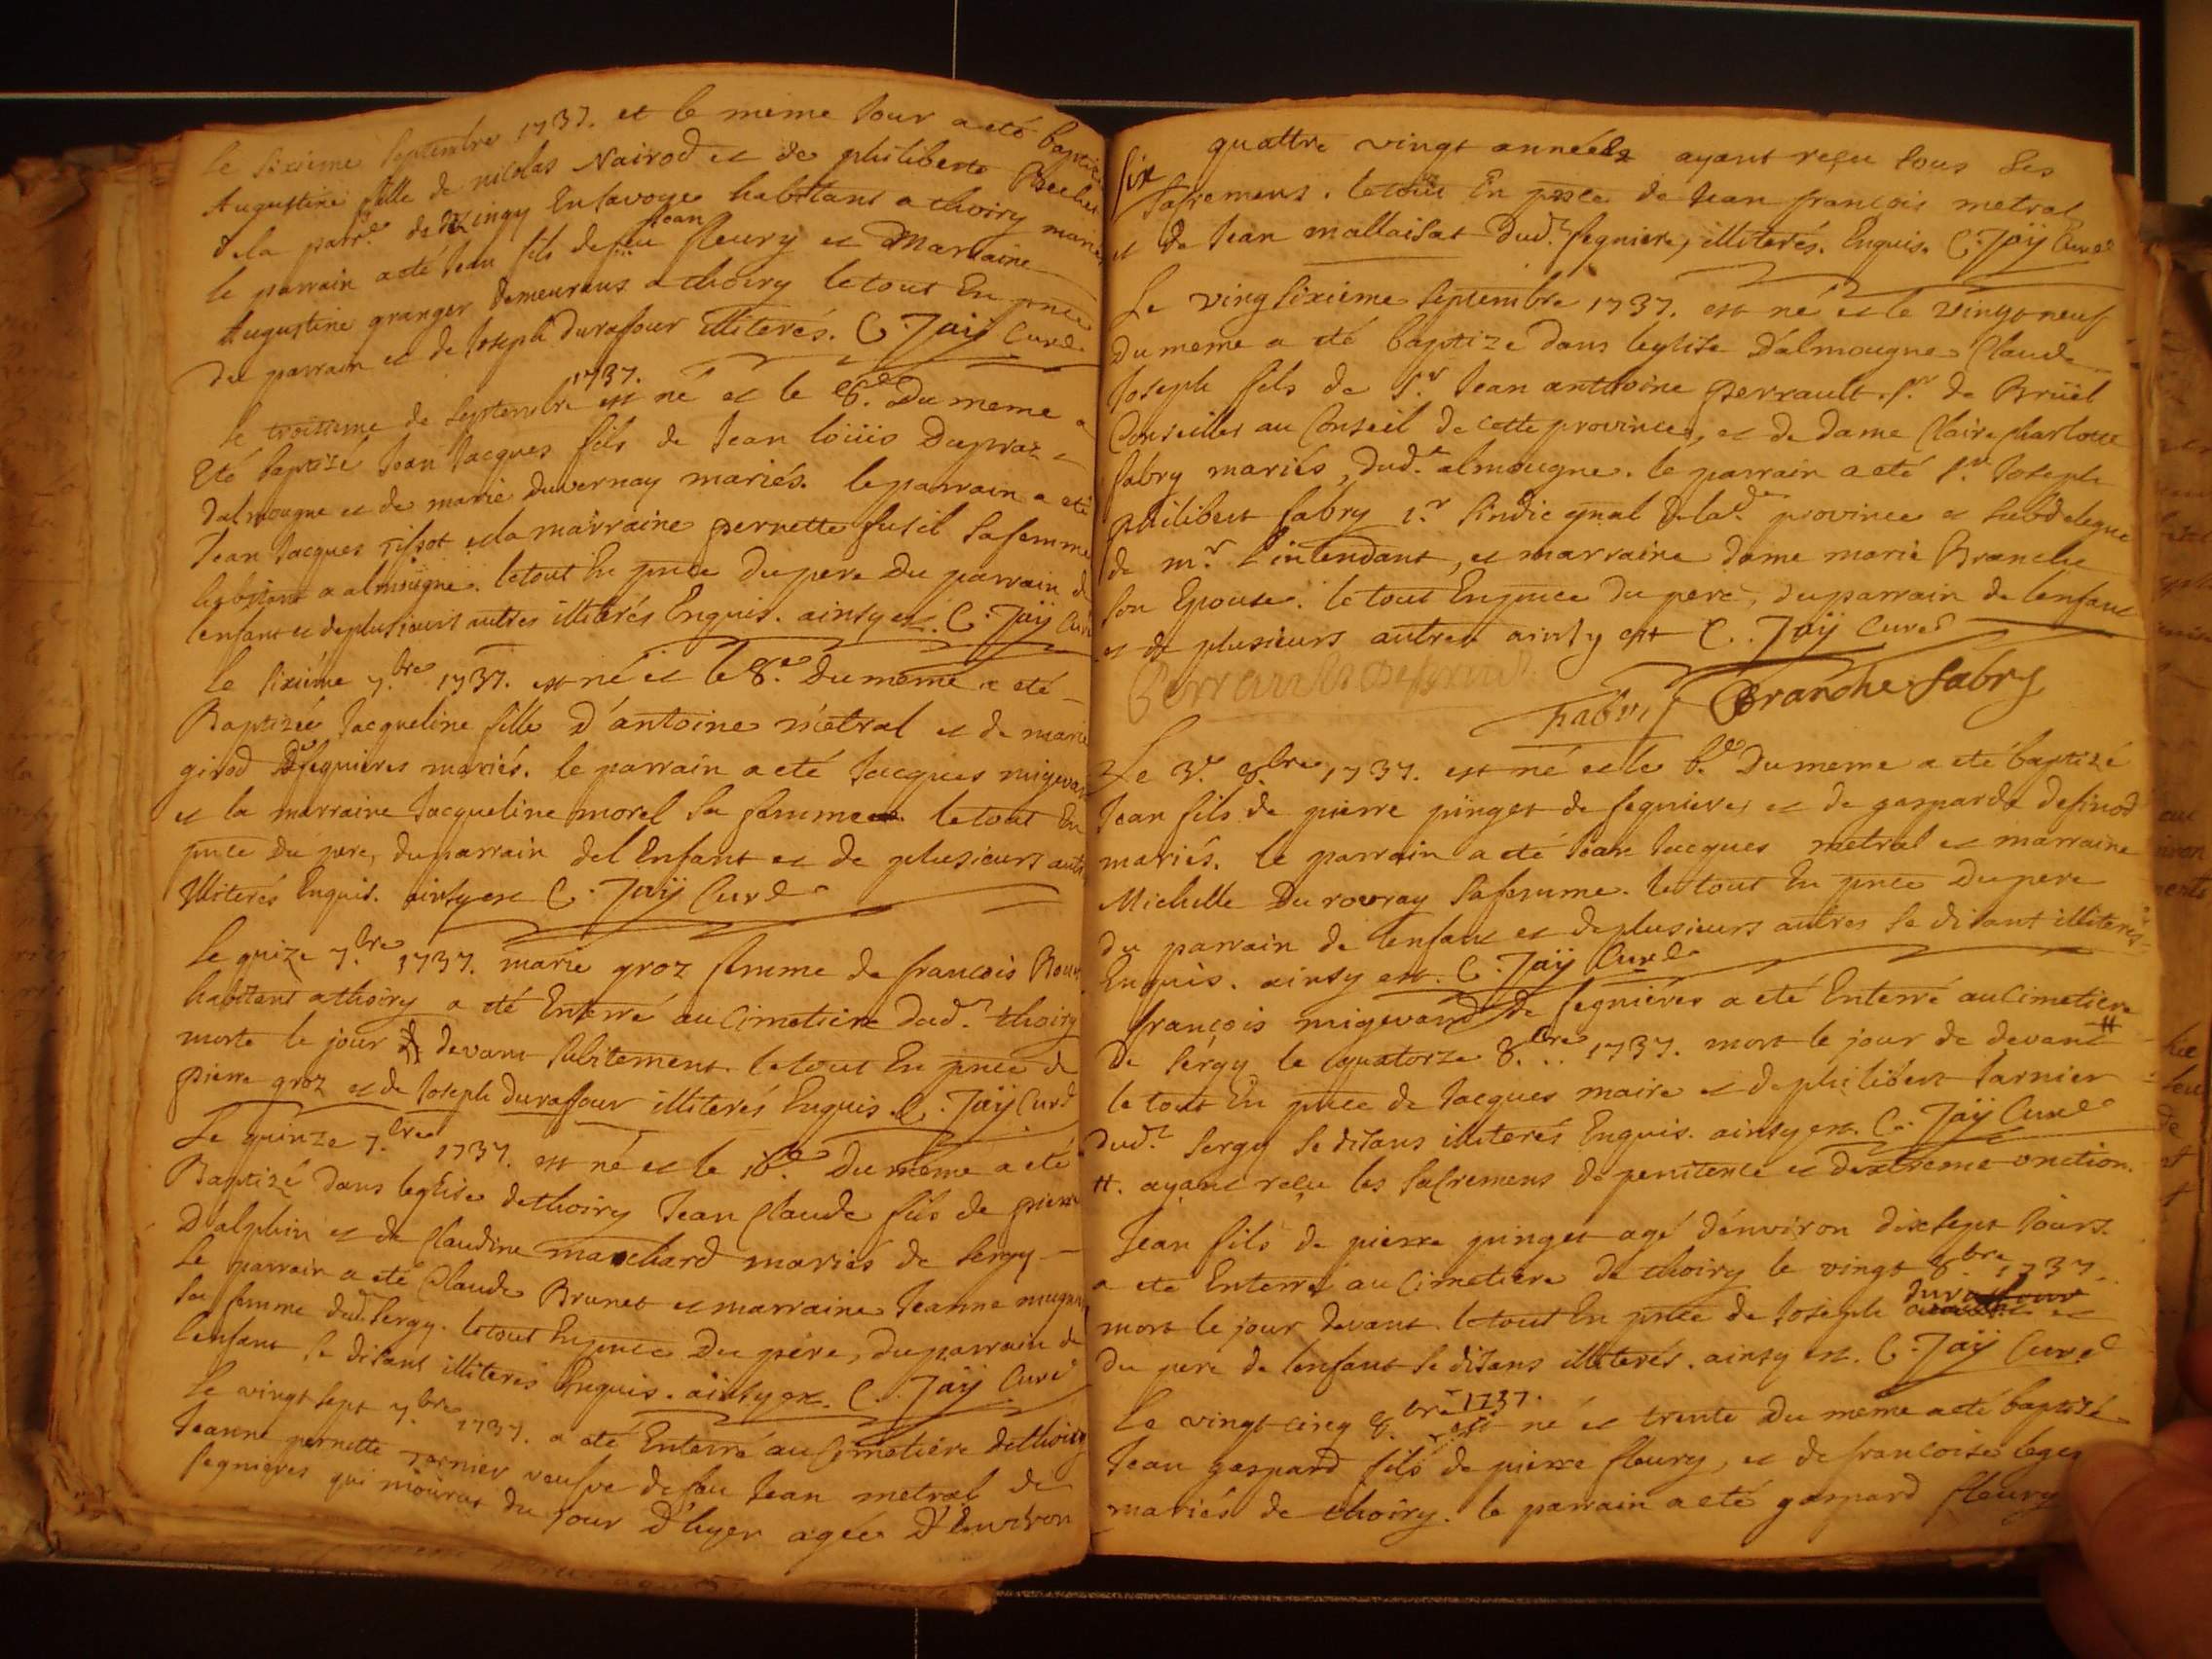 Le sixieme septembre 1737. et le meme jour a eté baptisée
Augustine fille de nicolas Nairod et de philiberte
de la parr.e de Zingy Ensavoye habitans a thoiry mariés
jean
le parrain a eté jean fils de feu fleury et Marraine
Augustine granger demeurans a thoiry le tout En pnce
du parrain et de Joseph durafour illiterés. C. Jaÿ Curé
1737.
le troisieme de septembre est né et le 8.e Du meme a
Eté baptisé Jean Jacques fils de Jean loüis Dupraz
dalmougne et de marie duvernay mariés. le parrain a eté
Jean Jacques tissot et la marraine pernette fusil sa femme
habitans a almougne. le tout En pnce du pere Du parrain de
l'enfant et de plusieurs autres illiterés Enquis. ainsy est. C. Jaÿ Curé
Le sixiéme 7.bre 1737. est né et le 8.e Du meme a eté
Baptizée Jacqueline fille D'antoine métral et de marie
girod De segnieres mariés. le parrain a eté Jacques migevand
et la marraine Jacqueline morel sa femme le tout En
pnce Du pere, du parrain del Enfant et de plusieurs autres
Illiterés Enquis. ainsy est C. Jaÿ Curé
Le quize 7.bre 1737. marie groz femme de francois
habitant a thoiry a eté Enterré au Cimetiere dud.t thoiry
morte le jour devant subitement. le tout En pnce de
pierre groz et de Joseph durafour illiterés Enquis. C. Jaÿ Curé
Le quinze 7.bre 1737. est né et le 16.e Du meme a eté
Baptizé dans leglise de thoiry Jean Claude fils de pierre
Dalphin et de Claudine marchard mariés de sergy
Le parrain a eté Claude Brunet et marraine Jeanne
sa femme dud. sergy. le tout En pnce Du pére, du parrain de
l'enfant se disant illiterés Enquis. ainsy est. C. Jaÿ Curé
Le vingt sept 7.bre 1737. a eté Enterré au Cimetiére de thoiry
Jeanne pernette tarnier veufve de feu Jean metral de
segnieres qui mourut du jour D'hyer agée D'Environ
quattre vingt années ayant reçu tous ses
six
sacremens. le tout En pnce de Jean françois metral
et de Jean mallaisat Dud.t segniere, illiterés. Enquis. C. Jaÿ Curé
Le vingsixiéme septembre 1737. est né et le vingt neuf
Du meme a eté baptizé dans leglise D'almougne Claude
Joseph fils de S.r Jean anthoine perrault. S.r de Brüel
Conseiller au Conseil de cette province, et de dame Claire Charlotte
fabry mariés, dud.t almougne. le parrain a eté S.r Joseph
philibert fabry 1.r sindic gnal de lad.e province et subdelegué
de m.r L'intendant, et marraine dame marie Branche
son Epouse. le tout En pnce du pere, du parrain de l'enfant
et de plusieurs autres ainsy est C. Jaÿ Curé
Perrault
Fabry Branche fabry
Le 3.e 8.bre 1737. est né et le 6.e Du meme a eté baptizé
Jean fils de pierre pinget de segnieres et de gasparde desinod
mariés. le parrain a eté Jean Jacques metral et marraine
Michelle Du rovray sa femme. le tout En pnce Du pere
du parrain de l'enfant et de plusieurs autres se disant illiterés
Enquis. ainsy est. C. Jaÿ Curé
françois migevand de segniéres a eté Enterré au Cimetiere
De sergy le quatorze 8.bre 1737. mort le jour de devant #
le tout En pnce de Jacques maire et de philibert tarnier
dud.t sergy se disans illiterés Enquis. ainsy est. C. Jaÿ Curé
#. ayant reçu les sacremens de penitence et dextreme onction.
Jean fils de pierre pinget agé d'énviron dix sept jours.
a eté Enterré au Cimetiere de thoiry le vingt 8.bre 1737.
durafour
mort le jour devant. le tout En pnce de Joseph et
du pere de l'enfant se disans illiterés. ainsy est. C. Jaÿ Curé
Le vingt cinq 8.bre 1737. est né et trente Du meme a eté baptisé
Jean gaspard fils de pierre fleury, et de francoise leger
mariés de thoiry. le parrain a eté gaspard fleury